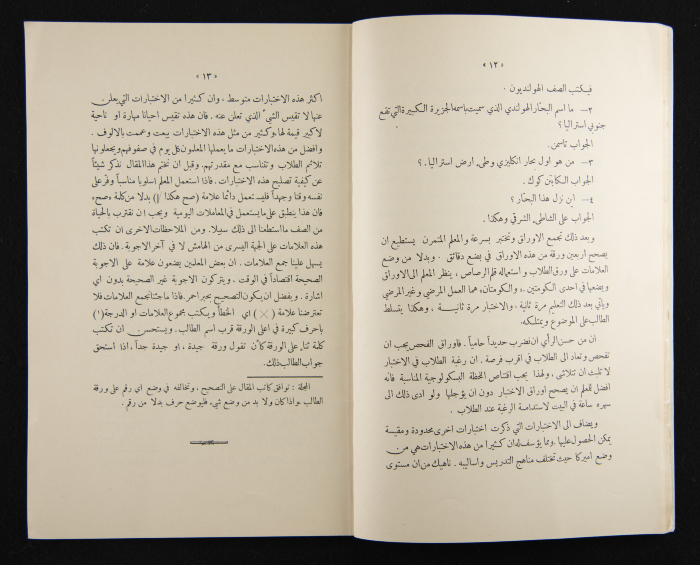 « ١٢ »
فيكتب الصف الهولنديون .
٢— ما اسم البحّار الهولندي الذي سميت باسمه الجزيرة الكبيرة التي تقع
جنوبي استراليا ؟
الجواب تاسمن .
٣— من هو اول بحار انكليزي وطىء ارض استراليا . ؟
الجواب الكابتن كوك .
٤— اين نزل هذا البحار ؟
الجواب على الشاطىء الشرقي وهكذا .
وبعد ذلك تجمع الاوراق وتختبر بسرعة والمعلم المتمرن يستطيع ان
يصحح اربعين ورقة من هذه الاوراق في بضع دقائق . وبدلا من وضع
العلامات على ورق الطلاب واستعماله قلم الرصاص ، ينظر المعلم الى الاوراق
ويضعها في احدى الكومتين ، والكومتان هما العمل المرضي وغير المرضي
ويأتي بعد ذلك التعليم مرة ثانية ، والاختبار مرة ثانيـة ، وهكذا يتسلط
الطالب على الموضوع ويمتلكه .
ان من حسن الرأي ان نضرب حديداً حامياً . فاوراق الفحص يجب ان
تفحص وتعاد الى الطلاب في اقرب فرصة . ان رغبة الطلاب في الاختبار
لا تلبث ان تتلاشى ، ولهذا يجب اقتناص اللحظة البسكولوجية المناسبة فانه
افضل للمعلم ان يصحح اوراق الاختبار دون ان يؤجلها ولو ادى ذلك الى
سهره ساعة في البيت لاستدامة الرغبة عند الطلاب .
ويضاف الى الاختبارات التي ذكرت اختبارات اخرى محدودة ومقيسة
يمكن الحصول عليها . ومما يؤسف له ان كثيرا من هذه الاختبارات هي من
وضع اميركا حيث تختلف مناهج التدريس واساليبه . ناهيك من ان مستوى
« ١٣ »
اكثر هذه الاختبارات متوسط ، وان كثيرا من الاختبارات التي يعلن
عنها لا تقيس الشيء الذي تعلن عنه . فان هذه تقيس احيانا مهارة او ناحية
لا كبير قيمة لها . وكثير من مثل هذه الاختبارات بيعت وعممت بالالوف .
وافضل من هذه الاختبارات ما يعملها المعلمون كل يوم في صفوفهم ويجعلونها
تلائم الطلاب وتتناسب مع مقدرتهم . وقبل ان نختم هذا المقال نذكر شيئاً
عن كيفية تصليح هذه الاختبارات . فاذا استعمل المعلم اسلوبا مناسباً وفّر على
نفسه وقتا وجهداً فليستعمل دائما علامة (صح هكذا /) بدلا من كلمة «صح»
فان هذا ينطبق على ما يستعمل في المعاملات اليومية ويجب ان نقترب بالحياة
من الصف ما استطعنا الى ذلك سبيلا . ومن الملاحظات الاخرى ان تكتب
هذه العلامات على الجهة اليسرى من الهامش لا في آخر الاجوبة . فان ذلك
يسهل علينا جمع العلامات . ان بعض المعلمين يضعون علامة على الاجوبة
الصحيحة اقتصاداً في الوقت ، ويتركون الاجوبة غير الصحيحة بدون اي
اشارة . ويفضل ان يكون التصحيح بحبر احمر . فاذا ما جئنا لجمع العلامات فلا
تعترضنا علامة ( × ) اي الخطأ ويكتب مجموع العلامات او الدرجة (١)
باحرف كبيرة في اعلى الورقة قرب اسم الطالب . ويستحسن ان تكتب
كلمة ثناء على الورقة كأن تقول ورقة جيدة ، او جيدة جداً ، اذا استحق
جواب الطالب ذلك .
المجلة : نوافق كاتب المقال على التصحيح ، ونخالفه في وضع اي رقم على ورقة
الطالب ، واذا كان ولا بد من وضع شيء فليوضع حرف بدلا من رقم .